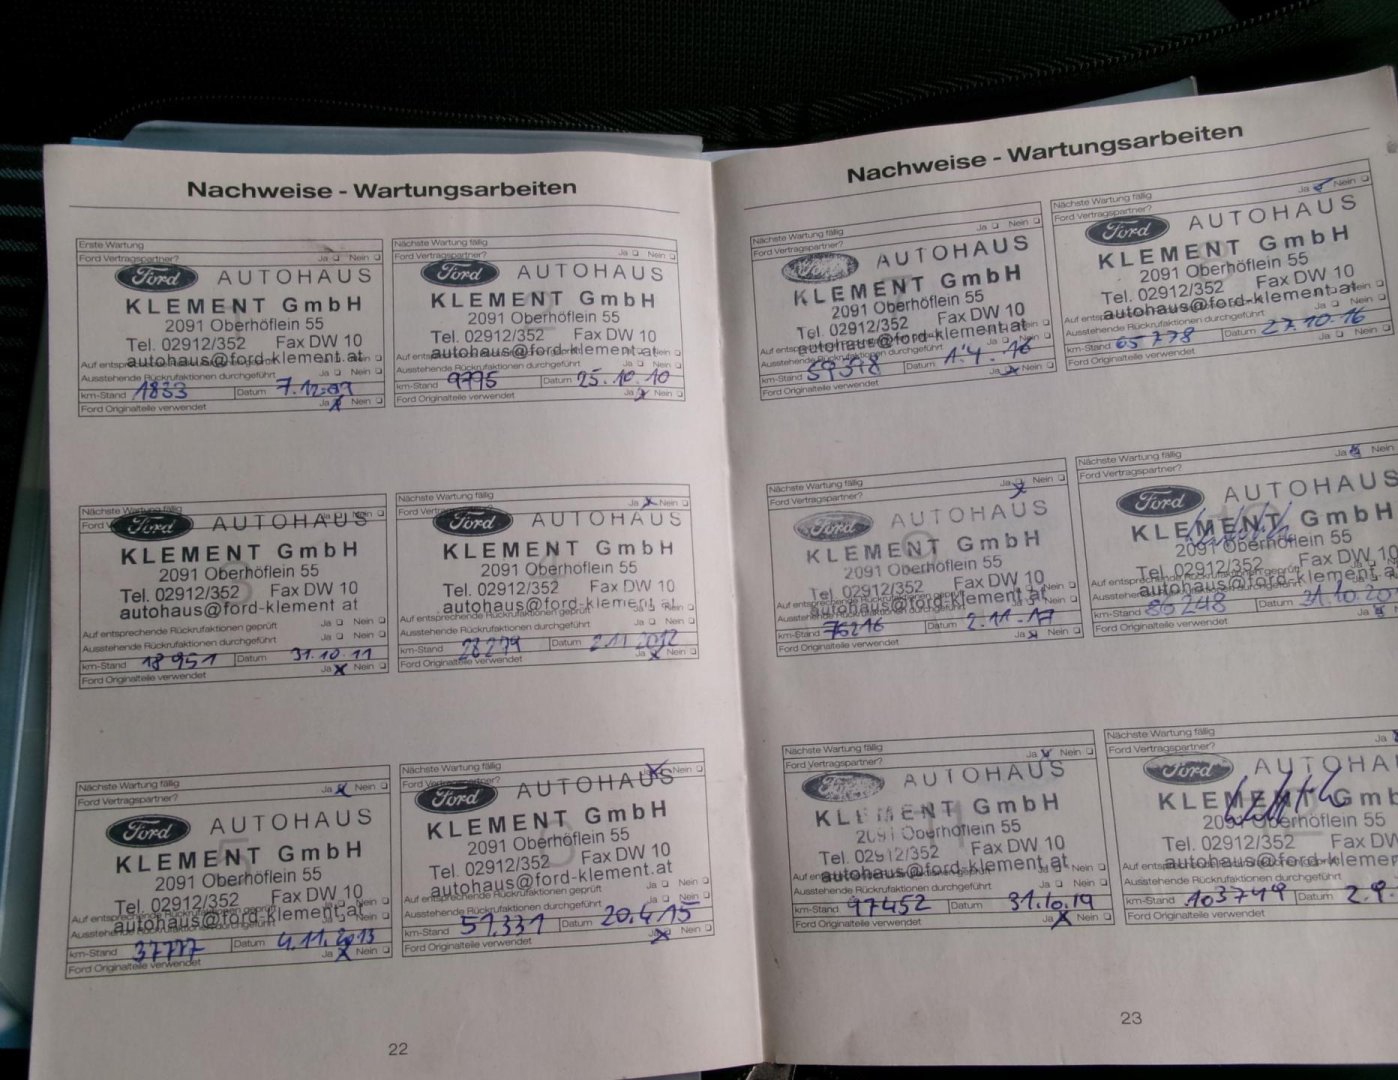 Nachweise - Wartungsarbeiten
Erste Wartung
Ford Vertragspartner? Ja Nein
Ford AUTOHAUS
KLEMENT GmbH
2091 Oberhöflein 55
Tel. 02912/352 Fax DW 10
autohaus@ford-klement.at
Ausstehende Rückrufaktionen durchgeführt Ja Nein
km-Stand 1833 Datum 7.12.09
Ford Originalteile verwendet Ja Nein
Nächste Wartung fällig
Ford Vertragspartner? Ja Nein
Ford AUTOHAUS
KLEMENT GmbH
2091 Oberhöflein 55
Tel. 02912/352 Fax DW 10
autohaus@ford-klement.at
Ausstehende Rückrufaktionen durchgeführt Ja Nein
km-Stand 9775 Datum 25.10.10
Ford Originalteile verwendet Ja Nein
Nächste Wartung fällig
Ford AUTOHAUS
KLEMENT GmbH
2091 Oberhöflein 55
Tel. 02912/352 Fax DW 10
autohaus@ford-klement at
Auf entsprechende Rückrufaktionen geprüft Ja Nein
Ausstehende Rückrufaktionen durchgeführt Ja Nein
km-Stand 18951 Datum 31.10.11
Ford Originalteile verwendet Ja Nein
Nächste Wartung fällig Ja Nein
Ford AUTOHAUS
KLEMENT GmbH
2091 Oberhöflein 55
Tel. 02912/352 Fax DW 10
autohaus@ford-klement.at
Auf entsprechende Rückrufaktionen geprüft Ja Nein
Ausstehende Rückrufaktionen durchgeführt Ja Nein
km-Stand 28279 Datum 2.11.2012
Ford Originalteile verwendet Ja Nein
Nächste Wartung fällig
Ford Vertragspartner? Ja Nein
Ford AUTOHAUS
KLEMENT GmbH
2091 Oberhöflein 55
Tel. 02912/352 Fax DW 10
autohaus@ford-klement.at
km-Stand 37777 Datum 4.11.2013
Ford Originalteile verwendet Ja Nein
Nächste Wartung fällig
Ford Vertragspartner? Nein
Ford AUTOHAUS
KLEMENT GmbH
2091 Oberhöflein 55
Tel. 02912/352 Fax DW 10
autohaus@ford-klement.at
Auf entsprechende Rückrufaktionen geprüft Ja Nein
Ausstehende Rückrufaktionen durchgeführt Ja Nein
km-Stand 51.331 Datum 20.4.15
Ford Originalteile verwendet Ja Nein
22
Nachweise - Wartungsarbeiten
Nächste Wartung fällig
Ford Vertragspartner? Ja Nein
Ford AUTOHAUS
KLEMENT GmbH
2091 Oberhöflein 55
Tel. 02912/352 Fax DW 10
autohaus@ford-klement.at
Ausstehende Rückrufaktionen durchgeführt
km-Stand Datum 1.4.16
Ford Originalteile verwendet Ja Nein
Nächste Wartung fällig Ja Nein
Ford Vertragspartner?
Ford AUTOHAUS
KLEMENT GmbH
2091 Oberhöflein 55
Tel. 02912/352 Fax DW 10
autohaus@ford-klement.at
Ausstehende Rückrufaktionen durchgeführt Ja Nein
km-Stand 65778 Datum 27.10.16
Ford Originalteile verwendet Ja Nein
Nächste Wartung fällig
Ford Vertragspartner? Ja Nein
Ford AUTOHAUS
KLEMENT GmbH
2091 Oberhöflein 55
Tel. 02912/352 Fax DW 10
autohaus@ford-klement.at
Ausstehende Rückrufaktionen durchgeführt Ja Nein
km-Stand 76216 Datum 2.11.17
Ford Originalteile verwendet Ja Nein
Nächste Wartung fällig Ja Nein
Ford Vertragspartner?
Ford AUTOHAUS
KLEMENT GmbH
2091 Oberhöflein 55
Tel. 02912/352 Fax DW 10
autohaus@ford-klement.at
km-Stand 86248 Datum 31.10.20
Ford Originalteile verwendet Ja
Nächste Wartung fällig
Ford Vertragspartner? Ja Nein
Ford AUTOHAUS
KLEMENT GmbH
2091 Oberhöflein 55
Tel. 02912/352 Fax DW 10
autohaus@ford-klement.at
Ausstehende Rückrufaktionen durchgeführt Ja Nein
km-Stand 97452 Datum 31.10.19
Ford Originalteile verwendet Ja Nein
Nächste Wartung fällig
Ford Vertragspartner? Ja
Ford AUTOHA
KLEMENT Gmb
2091 Oberhöflein 55
Tel. 02912/352 Fax DW
autohaus@ford-klemen
Ausstehende Rückrufaktionen durchgeführt Ja Nein
km-Stand 103749 Datum 2.9.
Ford Originalteile verwendet
23